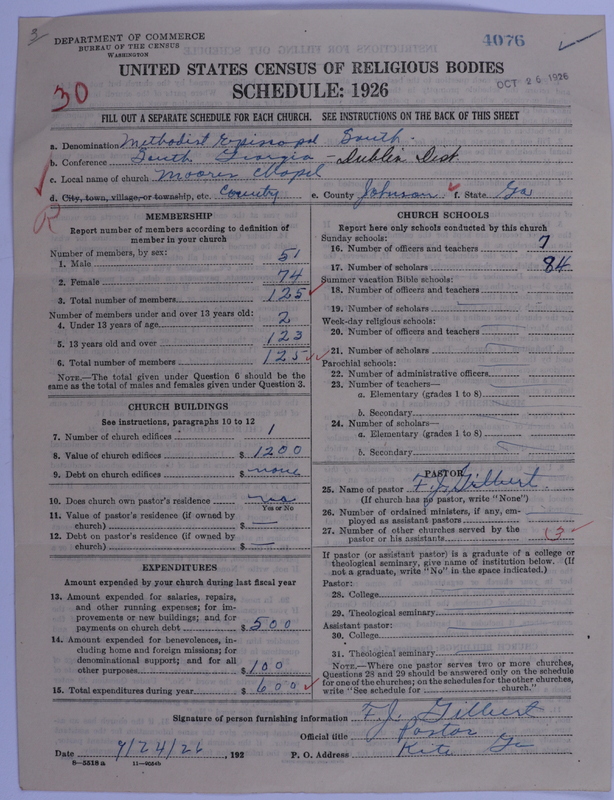 3
DEPARTMENT OF COMMERCE
BUREAU OF THE CENSUS
WASHINGTON
4076
UNITED STATES CENSUS OF RELIGIOUS BODIES
OCT 26 1926
30
SCHEDULE: 1926
FILL OUT A SEPARATE SCHEDULE FOR EACH CHURCH. SEE INSTRUCTIONS ON THE BACK OF THIS SHEET
a. Denomination Methodist Episcopal South.
b. Conference South Georgia - Dublin Dist.
c. Local name of church Moores Chapel
d. City, town, village, or township, etc. Country e. County Johnson f. State Ga
R
MEMBERSHIP
Report number of members according to definition of
member in your church
Number of members, by sex:
1. Male 51
2. Female 74
3. Total number of members 125
Number of members under and over 13 years old:
4. Under 13 years of age 2
5. 13 years old and over 123
6. Total number of members 125
NOTE.—The total given under Question 6 should be
same as the total of males and females given under Question 3.
CHURCH BUILDINGS
See instructions, paragraphs 10 to 12
7. Number of church edifices 1
8. Value of church edifices $ 1200
9. Debt on church edifices $ none
10. Does church own pastor's residence no
Yes or No
11. Value of pastor's residence (if owned by
church) $ —
12. Debt on pastor's residence (if owned by
church) $ —
EXPENDITURES
Amount expended by your church during last fiscal year
13. Amount expended for salaries, repairs,
and other running expenses; for im-
provements or new buildings; and for
payments on church debt $ 500
14. Amount expended for benevolences, in-
cluding home and foreign missions; for
denominational support; and for all
other purposes $ 100
15. Total expenditures during year $ 600
CHURCH SCHOOLS
Report here only schools conducted by this church
Sunday schools:
16. Number of officers and teachers 7
17. Number of scholars 84
Summer vacation Bible schools:
18. Number of officers and teachers
19. Number of scholars
Week-day religious schools:
20. Number of officers and teachers
21. Number of scholars
Parochial schools:
22. Number of administrative officers
23. Number of teachers—
a. Elementary (grades 1 to 8)
b. Secondary
24. Number of scholars—
a. Elementary (grades 1 to 8)
b. Secondary
PASTOR
25. Name of pastor F. J. Gilbert
(If church has no pastor, write "None")
26. Number of ordained ministers, if any, em-
ployed as assistant pastors
27. Number of other churches served by the
pastor or his assistants 3
If pastor (or assistant pastor) is a graduate of a college or
theological seminary, give name of institution below. (If
not a graduate, write "No" in the space indicated.)
Pastor:
28. College
29. Theological seminary
Assistant pastor:
30. College
31. Theological seminary
NOTE.—Where one pastor serves two or more churches,
Questions 28 and 29 should be answered only on the schedule
for one of the churches; on the schedules for the other churches,
write "See schedule for church."
Signature of person furnishing information F. J. Gilbert
Official title Pastor
Date 9/24/26, 192 P. O. Address Kite Ga
8—5518 a 11—9054b